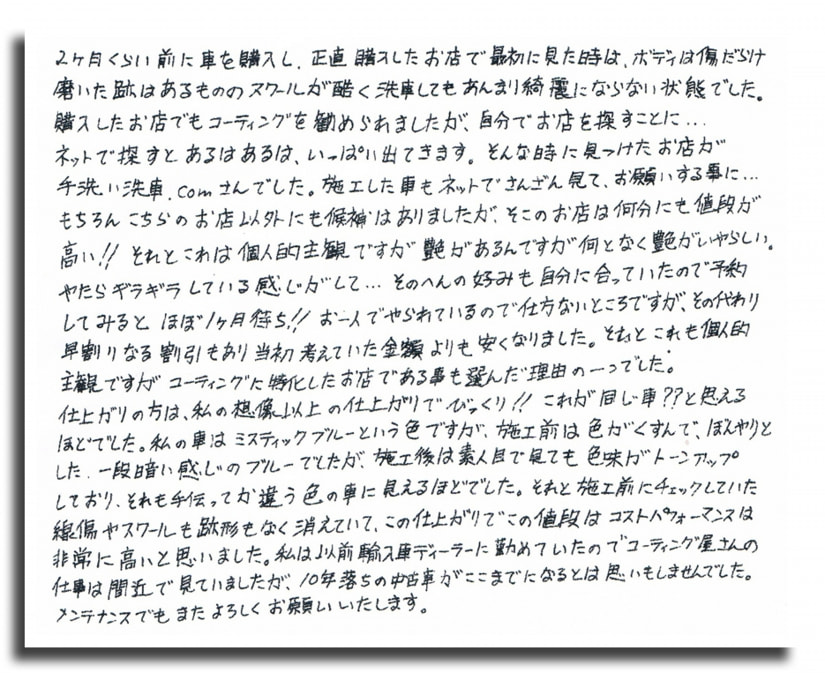 2ヶ月くらい前に車を購入し、正直購入したお店で最初に見た時は、ボディは傷だらけ
磨いた跡はあるもののスワールが酷く洗車してもあんまり綺麗にならない状態でした。
購入したお店でもコーティングを勧められましたが、自分でお店を探すことに...
ネットで探すとあるはあるは、いっぱい出てきます。そんな時に見つけたお店が
手洗い洗車.comさんでした。施工した車もネットでさんざん見て、お願いする事に...
もちろんこちらのお店以外にも候補はありましたが、そこのお店は何分にも値段が
高い!! それとこれは個人的主観ですが艶があるんですが何となく艶がいやらしい。
やたらギラギラしている感じがして... そのへんの好みも自分に合っていたので予約
してみると ほぼ1ヶ月待ち!! お一人でやられているので仕方ないところですが、その代わり
早割りなる割引もあり当初考えていた金額よりも安くなりました。それとこれも個人的
主観ですがコーティングに特化したお店である事も選んだ理由の一つでした。
仕上がりの方は、私の想像以上の仕上がりでびっくり!! これが同じ車??と思える
ほどでした。私の車はミスティックブルーという色ですが、施工前は色がくすんで、ぼんやりと
した、一段暗い感じのブルーでしたが、施工後は素人目で見ても色味がトーンアップ
しており、それも手伝ってか違う色の車に見えるほどでした。それと施工前にチェックしていた
線傷やスワールも跡形もなく消えていて、この仕上がりでこの値段はコストパフォーマンスは
非常に高いと思いました。私は以前輸入車ディーラーに勤めていたのでコーティング屋さんの
仕事は間近で見ていましたが、10年落ちの中古車がここまでになるとは思いもしませんでした。
メンテナンスでもまたよろしくお願いいたします。